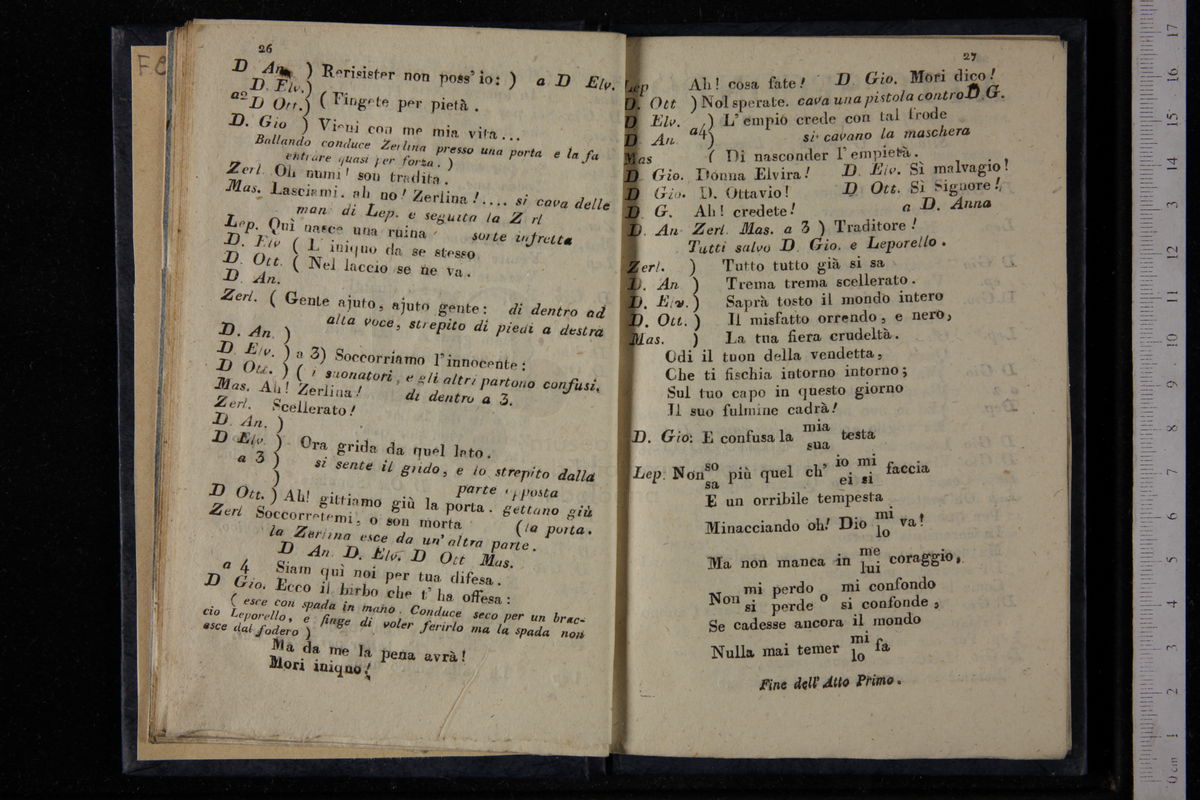 26
D An. ) Rerisister non poss' io: ) a D Elv.
D. Elv.)
a2 D Ott.) ( Fingete per pietà .
D. Gio ) Vieni con me mia vita...
Ballando conduce Zerlina presso una porta e la fa
entrare quasi per forza. )
Zerl. Oh numi! son tradita .
Mas. Lasciami. ah no! Zerlina !.... si cava delle
man di Lep. e seguita la Z rl
Lep. Quì nasce una ruina sorte infretta
D. Elv ( L' iniquo da se stesso
D. Ott. ( Nel laccio se ne va .
D. An.
Zerl. ( Gente ajuto, ajuto gente: di dentro ad
alta voce, strepito di piedi a destra
D. An. )
D. Elv. ) a 3) Soccorriamo l'innocente:
D Ott. ) ( i suonatori, e gli altri partono confusi.
Mas. Ah! Zerlina! di dentro a 3.
Zerl. Scellerato!
D. An. )
D Elv. ) Ora grida da quel lato .
a 3 ) si sente il grido, e lo strepito dalla
) parte opposta
D Ott. ) Ah! gittiamo giù la porta . gettano giù
Zerl Soccorretemi, o son morta (la porta.
la Zerlina esce da un' altra parte.
D An. D. Elv. D Ott Mas.
a 4 Siam quì noi per tua difesa .
D Gio. Ecco il birbo che t' ha offesa :
( esce con spada in mano . Conduce seco per un brac-
cio Leporello, e finge di voler ferirlo ma la spada non
esce dal fodero )
Ma da me la pena avrà!
Mori iniquo!
27
Lep Ah! cosa fate! D. Gio. Mori dico!
D. Ott ) Nol sperate. cava una pistola contro D. G.
D Elv. ) L'empio crede con tal frode
D An. a4) si cavano la maschera
Mas ( Di nasconder l'empietà .
D. Gio. Donna Elvira! D. Elv. Sì malvagio!
D Gio. D. Ottavio! D. Ott. Sì Signore!
D. G. Ah! credete! a D. Anna
D. An Zerl. Mas. a 3 ) Traditore!
Tutti salvo D. Gio. e Leporello .
Zerl. ) Tutto tutto già si sa
D. An ) Trema trema scellerato .
D. Elv. ) Saprà tosto il mondo intero
D. Ott. ) Il misfatto orrendo, e nero,
Mas. ) La tua fiera crudeltà .
Odi il tuon della vendetta,
Che ti fischia intorno intorno;
Sul tuo capo in questo giorno
Il suo fulmine cadrà!
D. Gio: E confusa la mia sua testa
Lep. Non so sa più quel ch' io mi ei si faccia
E un orribile tempesta
Minacciando oh! Dio mi lo va!
Ma non manca in me lui coraggio,
Non mi perdo si perde o mi confondo si confonde,
Se cadesse ancora il mondo
Nulla mai temer mi lo fa
Fine dell' Atto Primo.